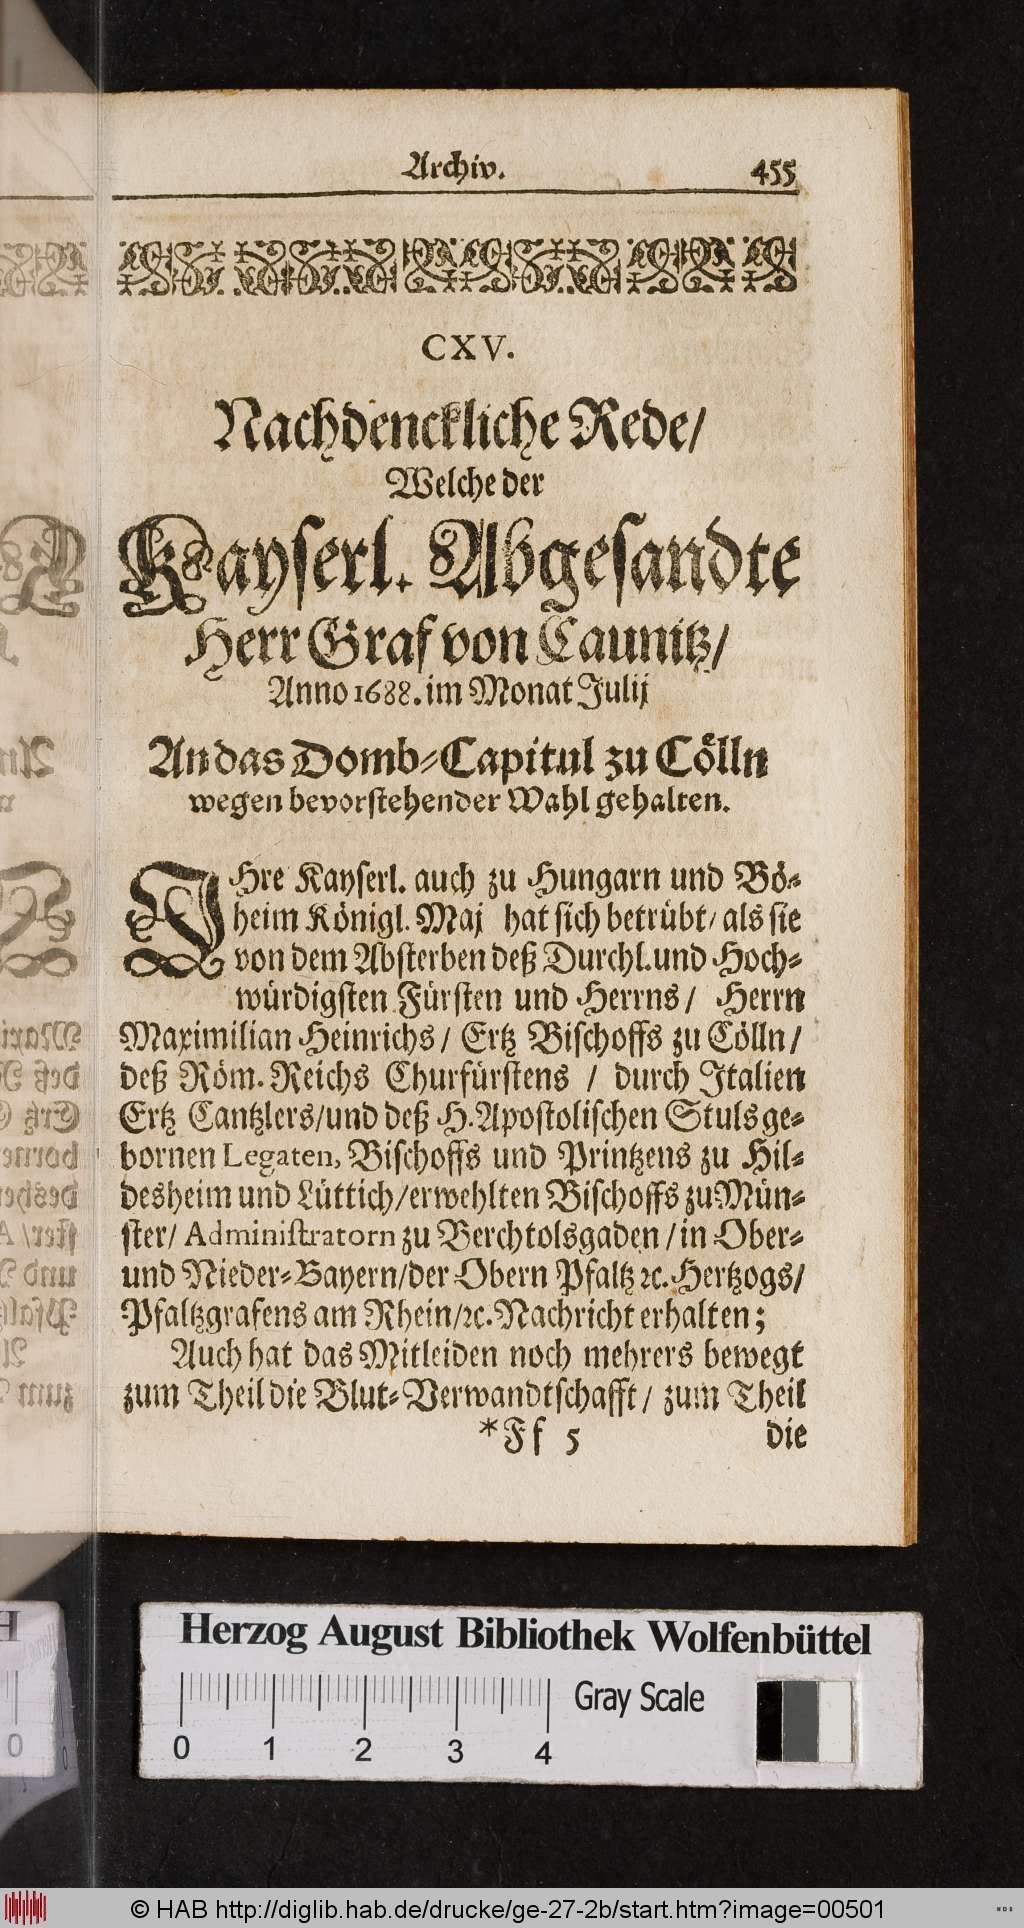 Archiv. 455
CXV.
Nachdenckliche Rede/
Welche der
Kayserl. Abgesandte
Herr Graf von Caunitz/
Anno 1688. im Monat Julij
An das Domb-Capitul zu Cölln
wegen bevorstehender Wahl gehalten.
IHre Kayserl. auch zu Hungarn und Bö-
heim Königl. Maj hat sich betrübt/ als sie
von dem Absterben deß Durchl. und Hoch-
würdigsten Fürsten und Herrns/ Herrn
Maximilian Heinrichs/ Ertz Bischoffs zu Cölln/
deß Röm. Reichs Churfürstens / durch Italien
Ertz Cantzlers/und deß H. Apostolischen Stuls ge-
bornen Legaten, Bischoffs und Printzens zu Hil-
desheim und Lüttich/erwehlten Bischoffs zu Mün-
ster/ Administratorn zu Berchtolsgaden/in Ober-
und Nieder-Bayern/der Obern Pfaltz ꝛc. Hertzogs/
Pfaltzgrafens am Rhein/ꝛc. Nachricht erhalten;
Auch hat das Mitleiden noch mehrers bewegt
zum Theil die Blut-Verwandtschafft/ zum Theil
*Ff 5 die
Herzog August Bibliothek Wolfenbüttel
Gray Scale
0 1 2 3 4
© HAB http://diglib.hab.de/drucke/ge-27-2b/start.htm?image=00501